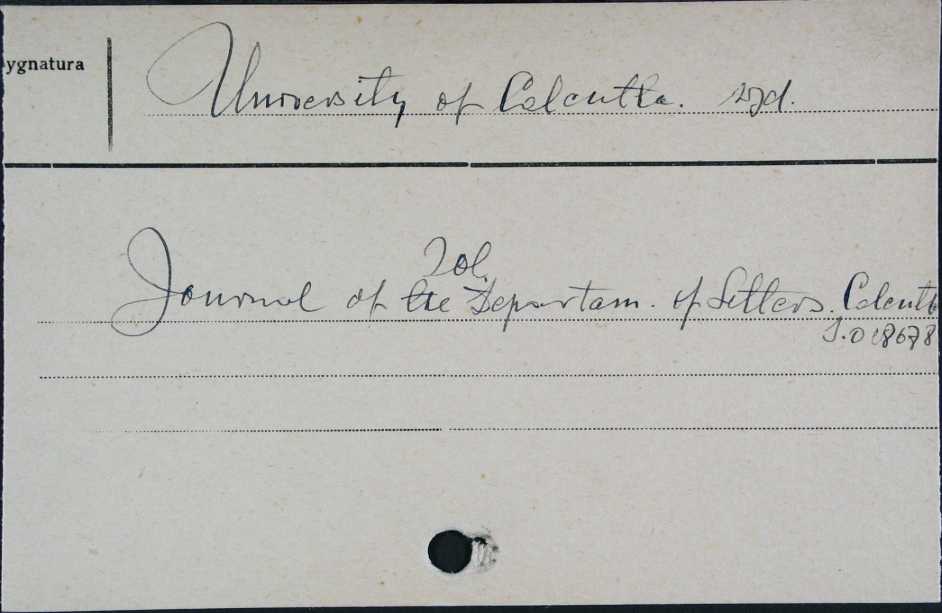 ygnatura
University of Calcutta. wyd.
Zob.
Journal of the Departam. of Letters. Calcutt